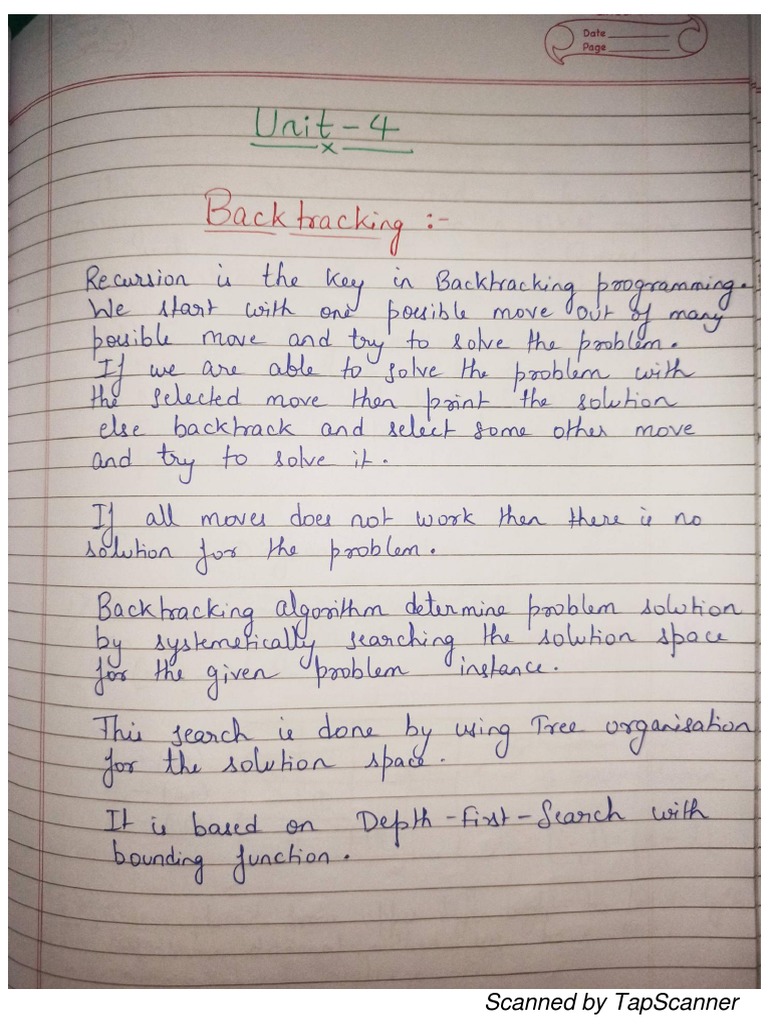 Date
Page
Unit - 4
x
Backtracking :-
Recursion is the key in Backtracking programming.
We start with one possible move out of many
possible move and try to solve the problem.
If we are able to solve the problem with
the selected move then print the solution
else backtrack and select some other move
and try to solve it.
If all moves does not work then there is no
solution for the problem.
Backtracking algorithm determine problem solution
by systemetically searching the solution space
for the given problem instance.
This search is done by using Tree organisation
for the solution space.
It is based on Depth-First-Search with
bounding function.
Scanned by TapScanner